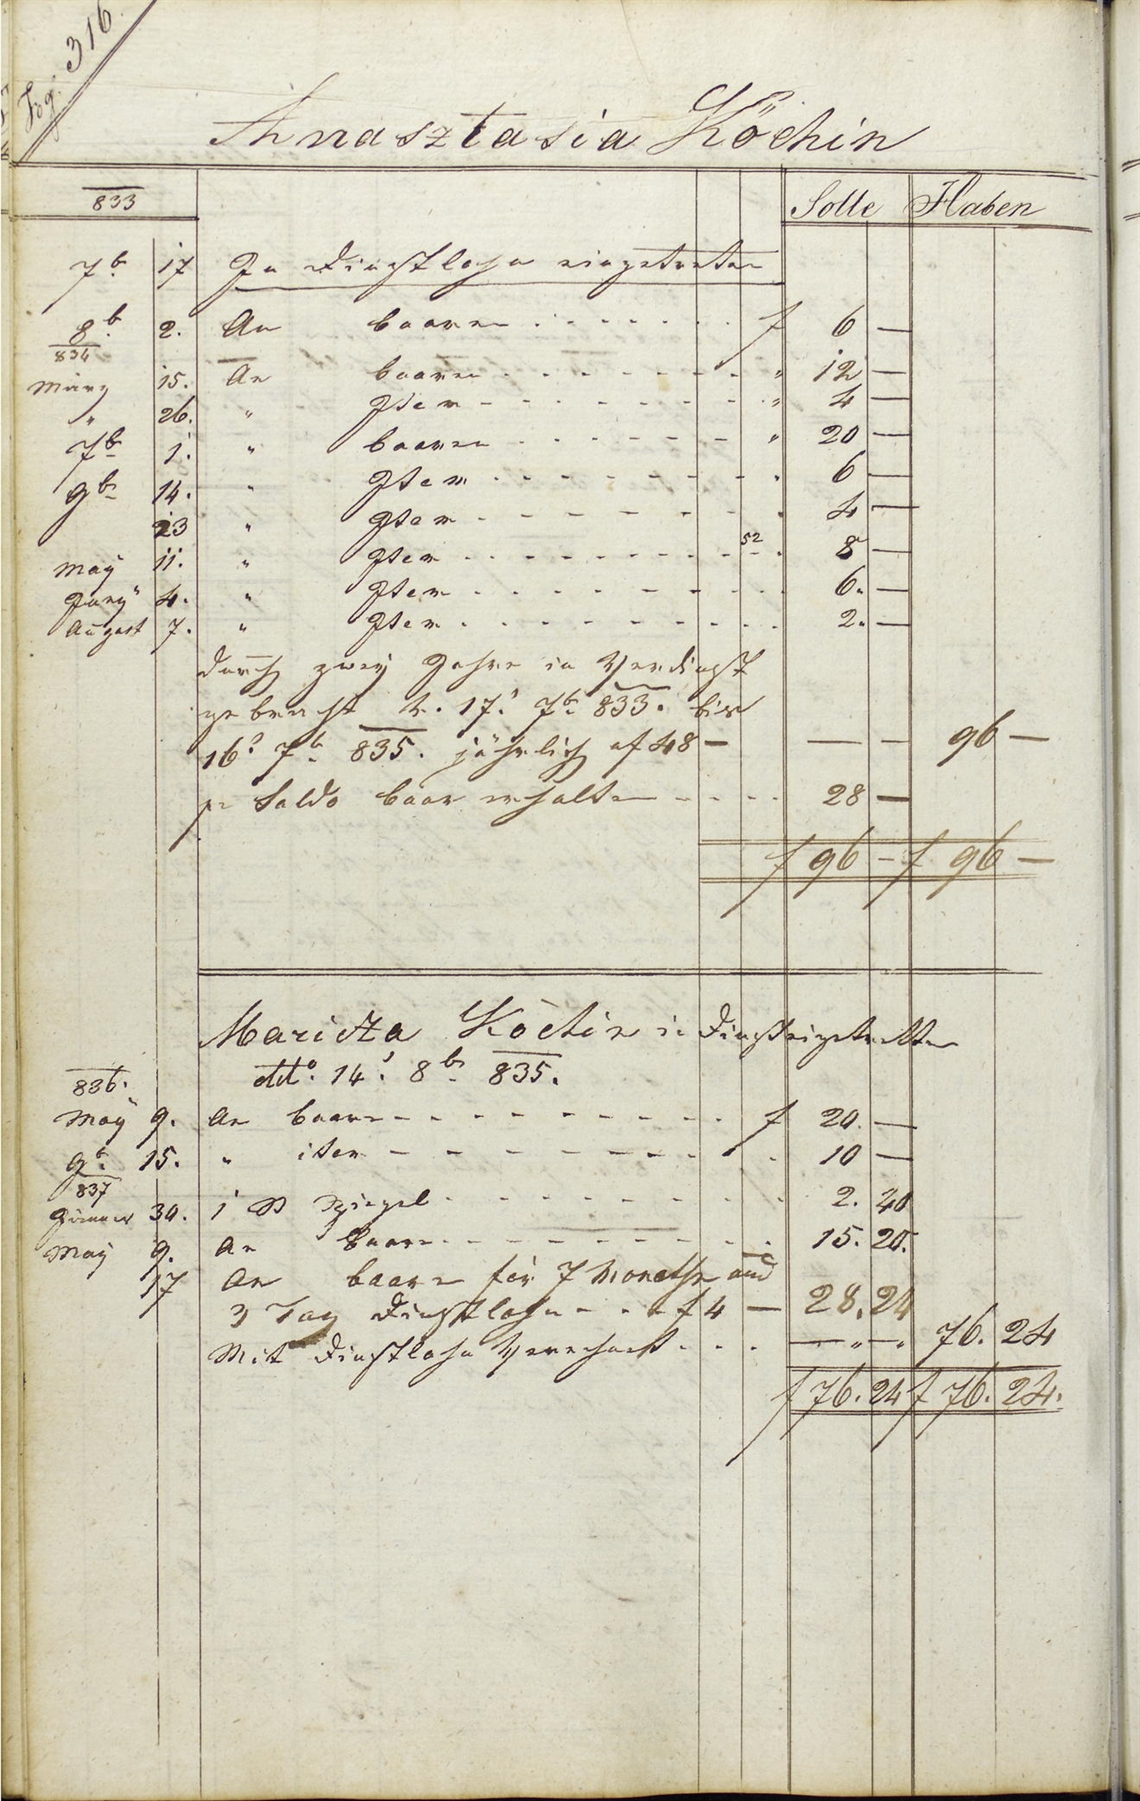 Pag: 316
Anasztasia Köchin
833 Solle Haben
7b 17 In Dienstlohn eingetreten
8b 2. An baaren f 6 —
834
März 15. An baaren " 12 —
" 26. " Item " 4 —
7b 1. " baaren " 20 —
9b 14. " Item " 6 —
23 " Item " 4 —
May 11. " Item 52 " 8 —
Juny 4. " Item 6. —
August 7. " Item 2. —
durch zwey Jahre in Verdinst
gebracht v. 17. 7b 833. bis
16. 7b 835. jährlich af 48 — — — 96 —
pr Saldo baar erhalten 28 —
f 96 — f 96 —
Maricza Köchin in Dienst eigetretten
dtto. 14. 8b 835.
836.
May 9. An baare f 20. —
9b 15. " item 10 —
837
Jänner 30. 1 Spiegel 2. 40
May 9. An baare 15. 20.
17 An baare für 7 Monathe und
3 Tag Dienstlohn f 4 — 28. 24
Mit Dienstlohn Verrechnet — " — " 76. 24
f 76. 24 f 76. 24.